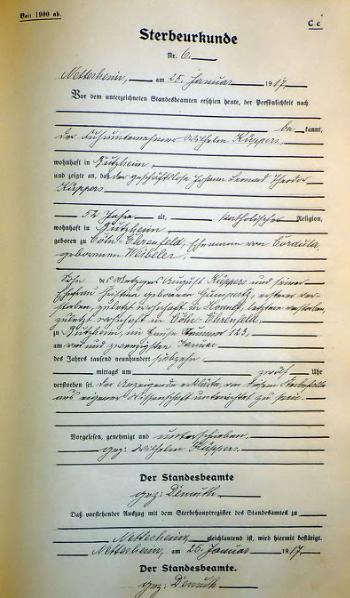 Von 1900 ab.
C c
Sterbeurkunde
Nr. 6.
Nettersheim, am 25. Januar 1917.
Vor dem unterzeichneten Standesbeamten erschien heute, der Persönlichkeit nach
be kannt,
der Fuhrunternehmer Wilhelm Küppers
wohnhaft in
und zeigte an, daß der geschäftslose Johann Leonard Theodor
Küppers
alt, katholischer Religion,
wohnhaft in
geboren zu Cöln-Ehrenfeld, Ehemann von Cordula,
geborenen
Sohn des Metzgers August Küppers und seiner
Ehefrau geborenen
wohnhaft in letztere verstorben,
zuletzt wohnhaft in Cöln Ehrenfeld
zu im Hause Nummer 123,
am und zwanzigsten Januar
des Jahres tausend neunhundert siebzehn
mittags um Uhr
verstorben sei. Der Anzeigende erklärte, von diesem Sterbefalle
aus eigener Wissenschaft unterrichtet zu sein.
Vorgelesen, genehmigt und unterschrieben.
gez: Wilhelm Küppers.
Der Standesbeamte
gez: Demuth.
Daß vorstehender Auszug mit dem Sterbehauptregister des Standesamtes zu
Nettersheim gleichlautend ist, wird hiermit bestätigt.
Nettersheim, am 25. Januar 1917.
Der Standesbeamte.
gez: Demuth